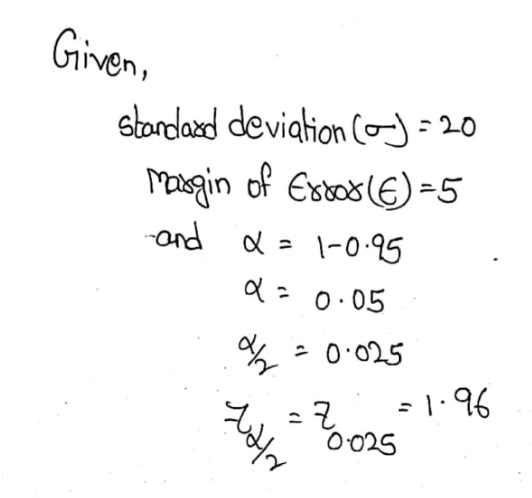 Given,
standard deviation (σ) = 20
Margin of Error (ϵ) = 5
and α = 1-0.95
α = 0.05
α/2 = 0.025
Z α/2 = Z 0.025 = 1.96